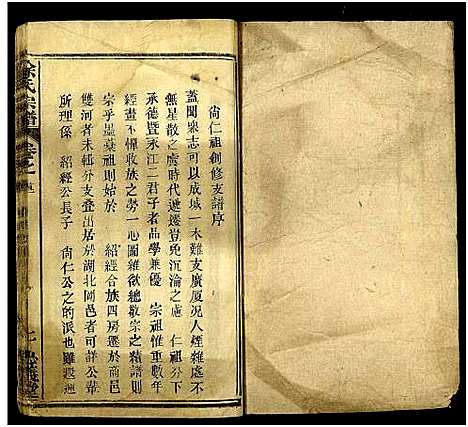 尚仁祖創修支譜序
蓋聞衆志可以成城一木難支廣厦況人煙雜處不
無星散之虞時代遞遷豈免沉淪之慮 仁祖分下
承德暨永江二君子者品學兼優 宗祖惟重數年
經畫不憚收族之勞一心圖維欲總散宗之精譜則
宗乎墨莫祖則始於 紹經合族四房遷於商邑
雙河者未輯分支叠出居於湖北同邑者可詳公輩
所理係 紹經公長子 尚仁公之的派也雖設運
徐氏宗譜
卷之
忠義堂